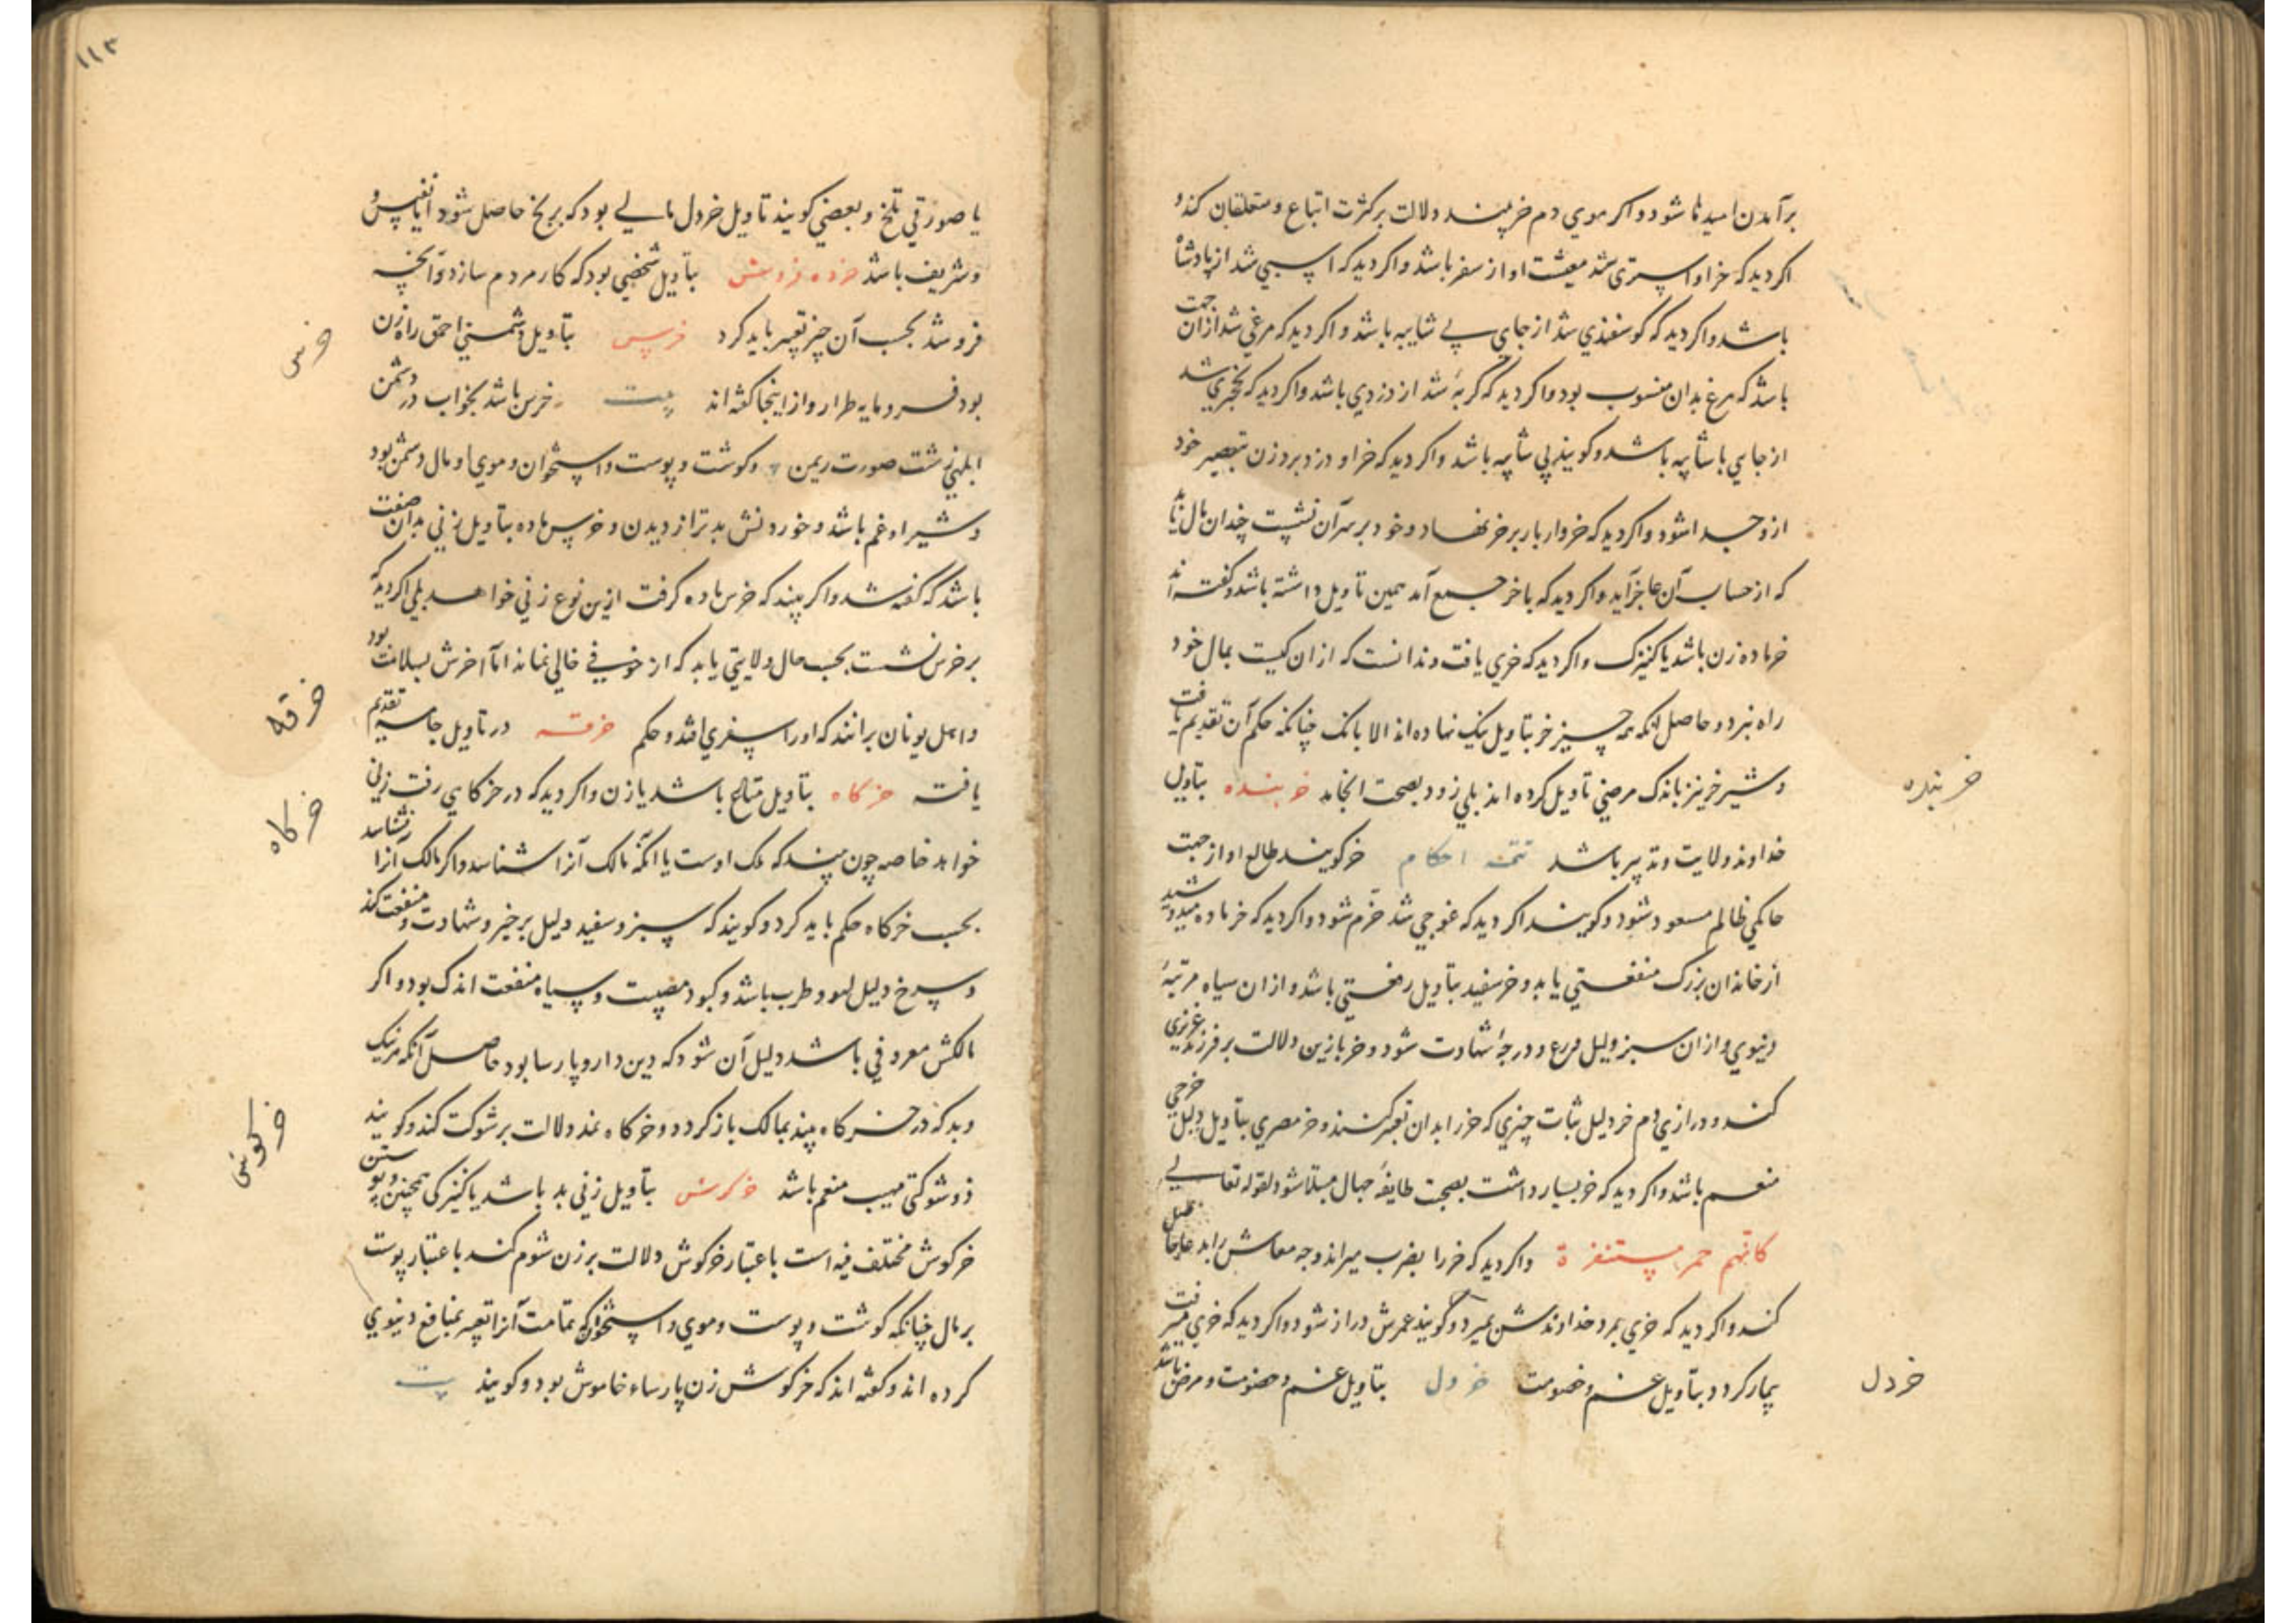 برآمدن امیدها شود و اکر موی دم خر بیند دلالت بر کثرت اتباع و متعلقان کند و
اکر دید که خر او استری شد معیشت او از سفر باشد و اکر دید که اسبی شد از پادشاه
باشد و اکر دید که کوسفندی شد از جای بی شایبه باشد و اکر دید که مرغی شد ازان جهت
باشد که مرغ بدان منسوب بود و اکر دید که کربهٔ شد از دزدی باشد و اکر دید که خنجری شد
از جایی باشایبه باشد و کویند بی شایبه باشد و اکر دید که خر او دزد برد زن بتقصیر خود
ازو جدا شود و اکر دید که خروار بار بر خر نهاد و خود بر سر آن نشست چندان مال یابد
که از حساب آن عاجز آید و اکر دید که با خر جمع آمد همین تاویل داشته باشد و کفته اند
خر ماده زن باشد یا کنیزک و اکر دید که خری یافت و ندانست که ازان کیست بمال خود
راه نبرد و حاصل آنکه همه چیز خر بتاویل نیک نهاده اند الا بانک چنانکه حکم آن تقدیم یافت
و شیر خر نیز باندک مرضی تاویل کرده اند بلی زود بصحت انجامد خربنده بتاویل
خربنده
خداوند ولایت و تدبیر باشد تتمه احکام خر کویند طالع او از جهت
حاکمی ظالم مسعود شود و کویند اکر دید که غوجی شد خرم شود و اکر دید که خر ماده میدوشید
از خاندان بزرک منفعتی یابد و خر سفید بتاویل رفعتی باشد و ازان سیاه مرتبهٔ
دنیوی و ازان سبز دلیل ورع و درجهٔ شهادت شود و خر بازین دلالت بر فرزند عزیزی
کند و درازی دم خر دلیل ثبات چیزی که خر را بدان تعبیر کنند و خر مصری بتاویل دلیل خرجی
منعم باشد و اکر دید که خر بسیار داشت بصحبت طایفهٔ جهال مبتلا شود لقوله تعالی
کانهم حمر مستنفرة و اکر دید که خر را بضرب میراند وجه معاش
کند و اکر دید که خری بمرد خداوندش بمیرد و کویند عمرش دراز شود و اکر دید که خری میرفت
بیمار کردد بتاویل غم و خصومت خردل بتاویل غم و خصومت و مرض باشد
خردل
۱۱۳
یا صورتی تلخ و بعضی کویند تاویل خردل مالی بود که برنج حاصل شود اما نفیس و
و شریف باشد خرده فروش بتاویل شخصی بود که کار مردم سازد و آنچه
فروشد بحسب آن چیز تعبیر باید کرد خرس بتاویل دشمنی احمق راه زن
خرس
بود فرومایه طرار و از اینجا کفته اند بیت خرس باشد بخواب در دشمن
ابلهی زشت صورت ریمن و کوشت و پوست و استخوان و موی او مال دشمن بود
و شیر او غم باشد و خوردنش بدتر از دیدن و خرس ماده بتاویل زنی بدان صفت
باشد که کفته شد و اکر بیند که خرس ماده کرفت ازین نوع زنی خواهد بلی اکر دید که
بر خرس نشست بحسب حال ولایتی یابد که از خوفی خالی نماند اما آخرش بسلامت بود
و اهل یونان برانند که او را سفری افتد و حکم خرقه در تاویل جامه تقدیم
خرقه
یافته خرگاه بتاویل متاع باشد یا زن و اکر دید که در خرکاهی رفت زنی
خرگاه
خواهد خاصه چون بیند که ملک اوست یا آنکه مالک آنرا شناسد و اکر مالک آنرا نشناسد
بحسب خرکاه حکم باید کرد و کویند که سبز و سفید دلیل بر خیر و شهادت و منفعت کند
و سرخ دلیل لهو و طرب باشد و کبود مصیبت و سیاه منفعت اندک بود و اکر
مالکش معروفی باشد دلیل آن شود که دین دار و پارسا بود حاصل آنکه هر نیک
و بد که در خرکاه بیند بمالک باز کردد و خرکاه نمد دلالت بر شوکت کند و کویند
ذو شوکتی مهیب منعم باشد خرگوش بتاویل زنی بد باشد یا کنیزکی همچنین و پوستن
خرگوش
خرکوش مختلف فیه است باعتبار خرکوش دلالت بر زن شوم کند باعتبار پوست
بر مال چنانکه کوشت و پوست و موی و استخوان که تمامت آنرا تعبیر بمنافع دنیوی
کرده اند و کفته اند که خرکوش زن پارساء خاموش بود و کویند بیت